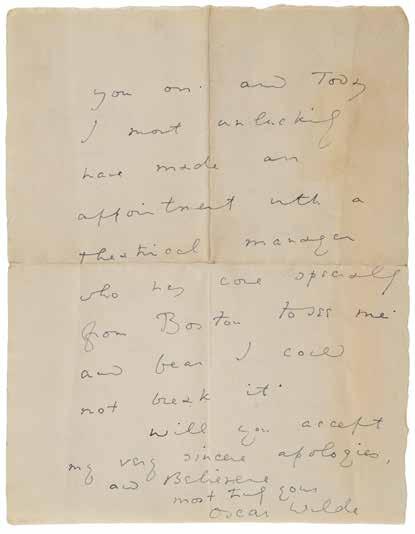 you on. and Today
I most unluckily
have made an
appointment with a
theatrical manager
who has come specially
from Boston to see me.
and I
not break it.
will you accept
my very sincere apologies,
and Believe me
most truly yours
Oscar Wilde